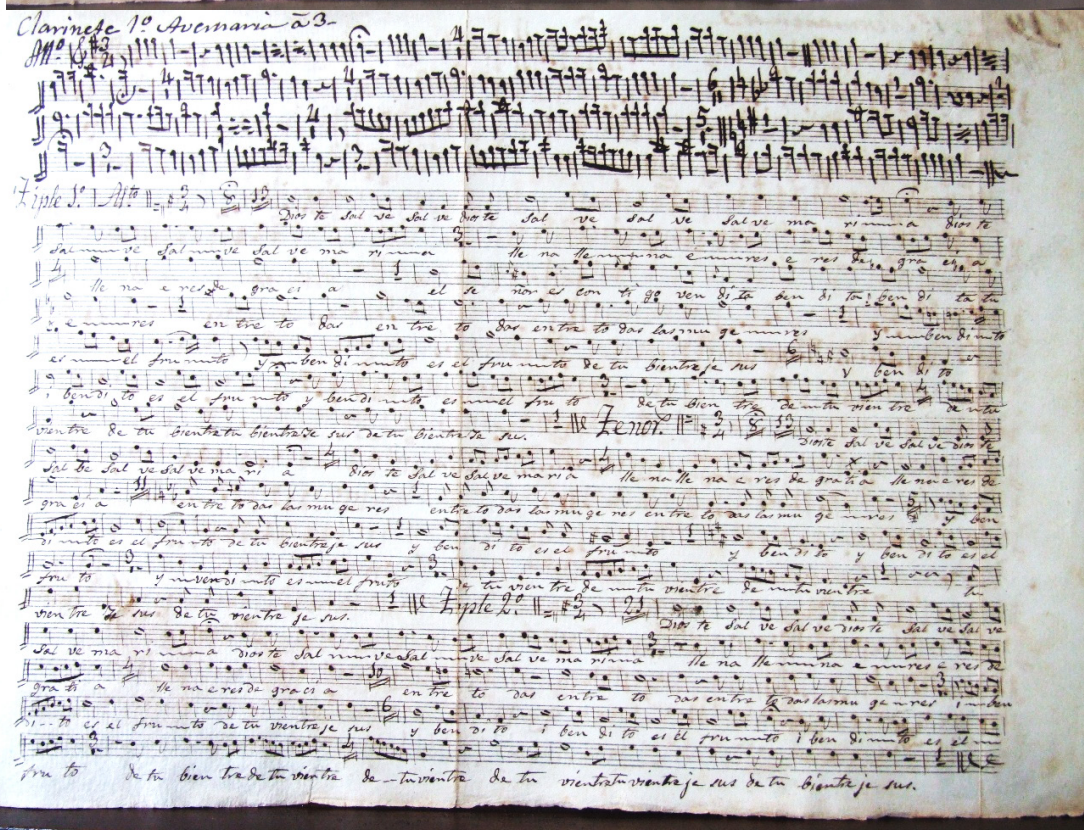 Clarinete 1º Avemaria â 3
Tiple 1º Alto
Dios te sal ve sal ve dios te sal ve sal ve sal ve ma ri a dios te
sal ve sal ve sal ve ma ri a lle na lle na e res e res de gra ci a
lle na e res de gra ci a el se ñor es con ti go ven di ta ben di ta ben di ta tu
e res en tre to das en tre to das entre to das las mu ge res y ben di to
es el fru to y ben di to es el fru to de tu bientre je sus y ben di to
i ben di to es el fru to y ben di to es el fru to de tu bien tre de tu vien tre de tu
vientre de tu bientratu bientre Je sus de tu bientre Je sus. Tenor Dios te sal ve sal ve dios te
sal be sal ve sal ve ma ri a dios te sal ve sal ve maria lle na lle na e res de gratia lle na e res de
gra ci a en tre to das las mu ge res entre to das las mu ge res entre to das las mu ge res y ben
di to es el fru to de tu bientre je sus y ben di to es el fru to y ben di to y ben di to es el
fru to y ven di to es el fruto de tu vientre de tu vientre de tu vientre tu
vien tre Je sus de tu vientre je sus. Tiple 2º Dios te sal ve sal ve dios te sal ve sal ve
sal ve ma ri a dios te sal ve sal ve sal ve ma ri a lle na lle na e res e res de
gra ti a lle na e res de gracia en tre to das entre to das entre to das las mu ge res i ben
di to es el fru to de tu vientre je sus y ben di to i ben di to es el fru to i ben di to es el
fru to de tu bien tre de tu vientre de tu vientre de tu vientratu vientre je sus de tu bientre je sus.